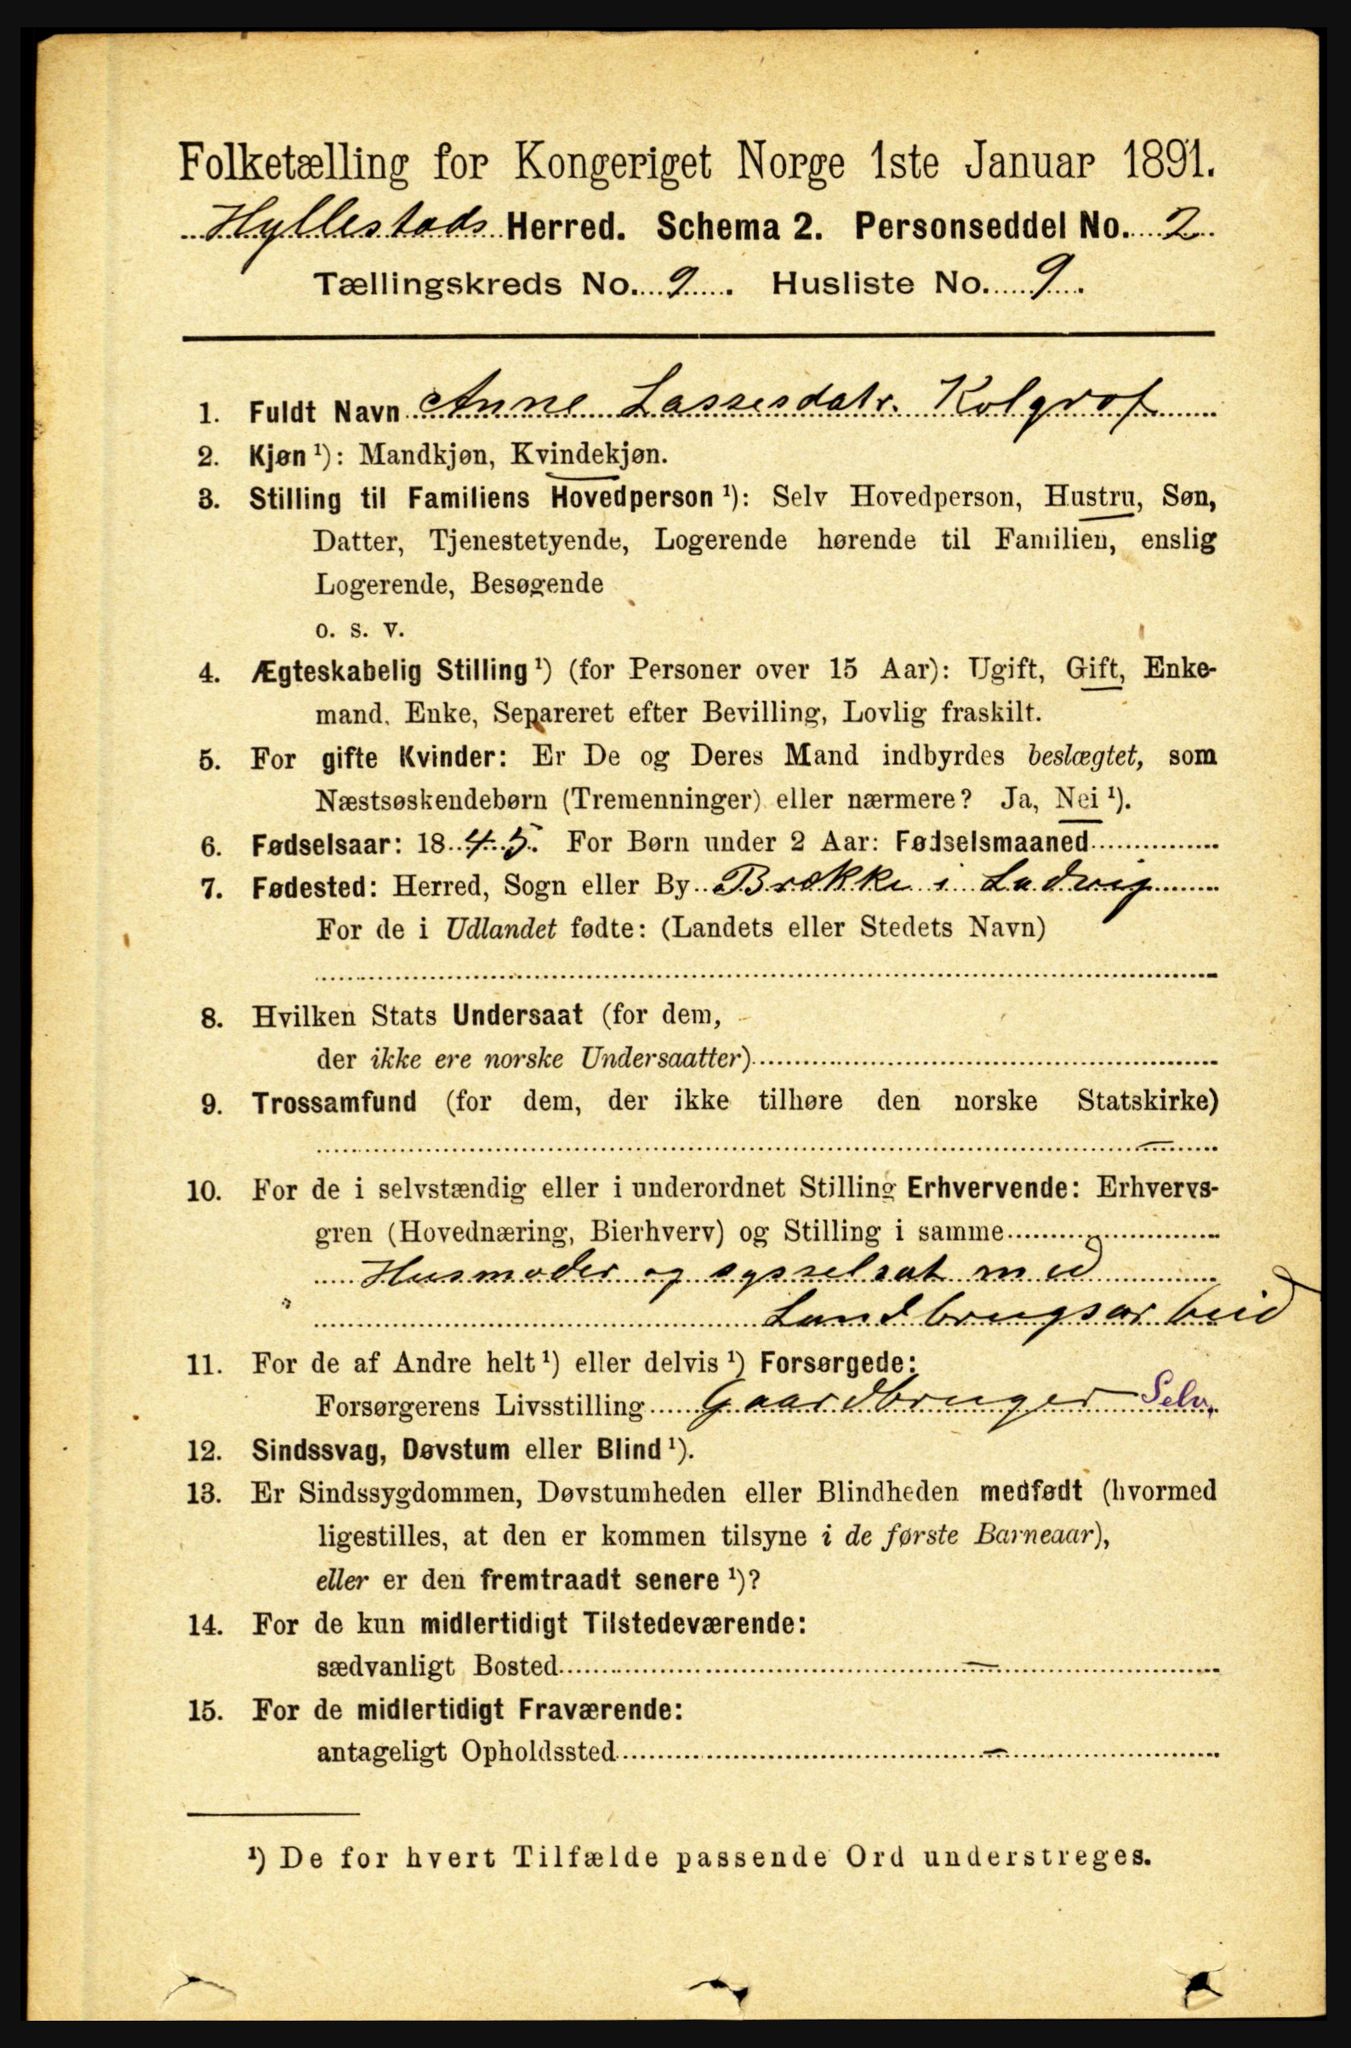 Folketælling for Kongeriget Norge 1ste Januar 1891.
Hyllestads Herred. Schema 2. Personseddel No. 2.
Tællingskreds No. 9. Husliste No. 9.
1. Fuldt Navn Anne Lassesdatr. Kolgrof
2. Kjøn ¹): Mandkjøn, Kvindekjøn.
3. Stilling til Familiens Hovedperson ¹): Selv Hovedperson, Hustru, Søn,
Datter, Tjenestetyende, Logerende hørende til Familien, enslig
Logerende, Besøgende
o. s. v.
4. Ægteskabelig Stilling ¹) (for Personer over 15 Aar): Ugift, Gift, Enke-
mand, Enke, Separeret efter Bevilling, Lovlig fraskilt.
5. For gifte Kvinder: Er De og Deres Mand indbyrdes beslægtet, som
Næstsøskendebørn (Tremenninger) eller nærmere? Ja, Nei ¹).
6. Fødselsaar: 1845. For Børn under 2 Aar: Fødselsmaaned
7. Fødested: Herred, Sogn eller By Brække i Ladvig
For de i Udlandet fødte: (Landets eller Stedets Navn)
8. Hvilken Stats Undersaat (for dem,
der ikke ere norske Undersaatter)
9. Trossamfund (for dem, der ikke tilhøre den norske Statskirke)
—
10. For de i selvstændig eller i underordnet Stilling Erhvervende: Erhvervs-
gren (Hovednæring, Bierhverv) og Stilling i samme
Husmoder og sysselsat med
Landbrugsarbeid
11. For de af Andre helt ¹) eller delvis ¹) Forsørgede:
Forsørgerens Livsstilling Gaardbruger Selv.
12. Sindssvag, Døvstum eller Blind ¹).
13. Er Sindssygdommen, Døvstumheden eller Blindheden medfødt (hvormed
ligestilles, at den er kommen tilsyne i de første Barneaar),
eller er den fremtraadt senere ¹)?
14. For de kun midlertidigt Tilstedeværende:
sædvanligt Bosted —
15. For de midlertidigt Fraværende:
antageligt Opholdssted —
¹) De for hvert Tilfælde passende Ord understreges.